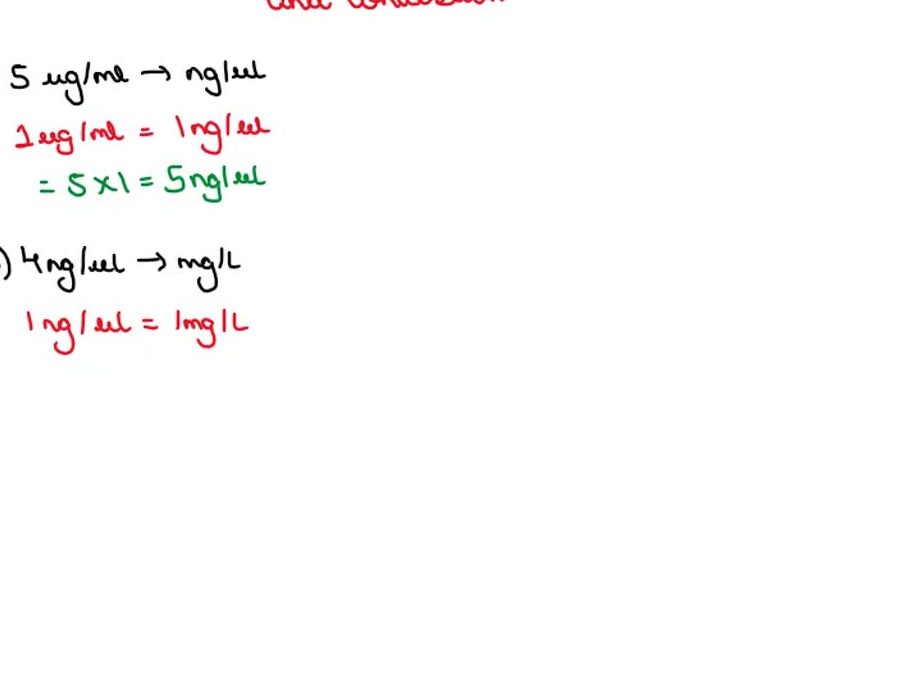 5 ug/ml → ng/ul
1ug/ml = 1ng/ul
= 5×1 = 5ng/ul
) 4ng/ul → mg/L
1ng/ul = 1mg/L